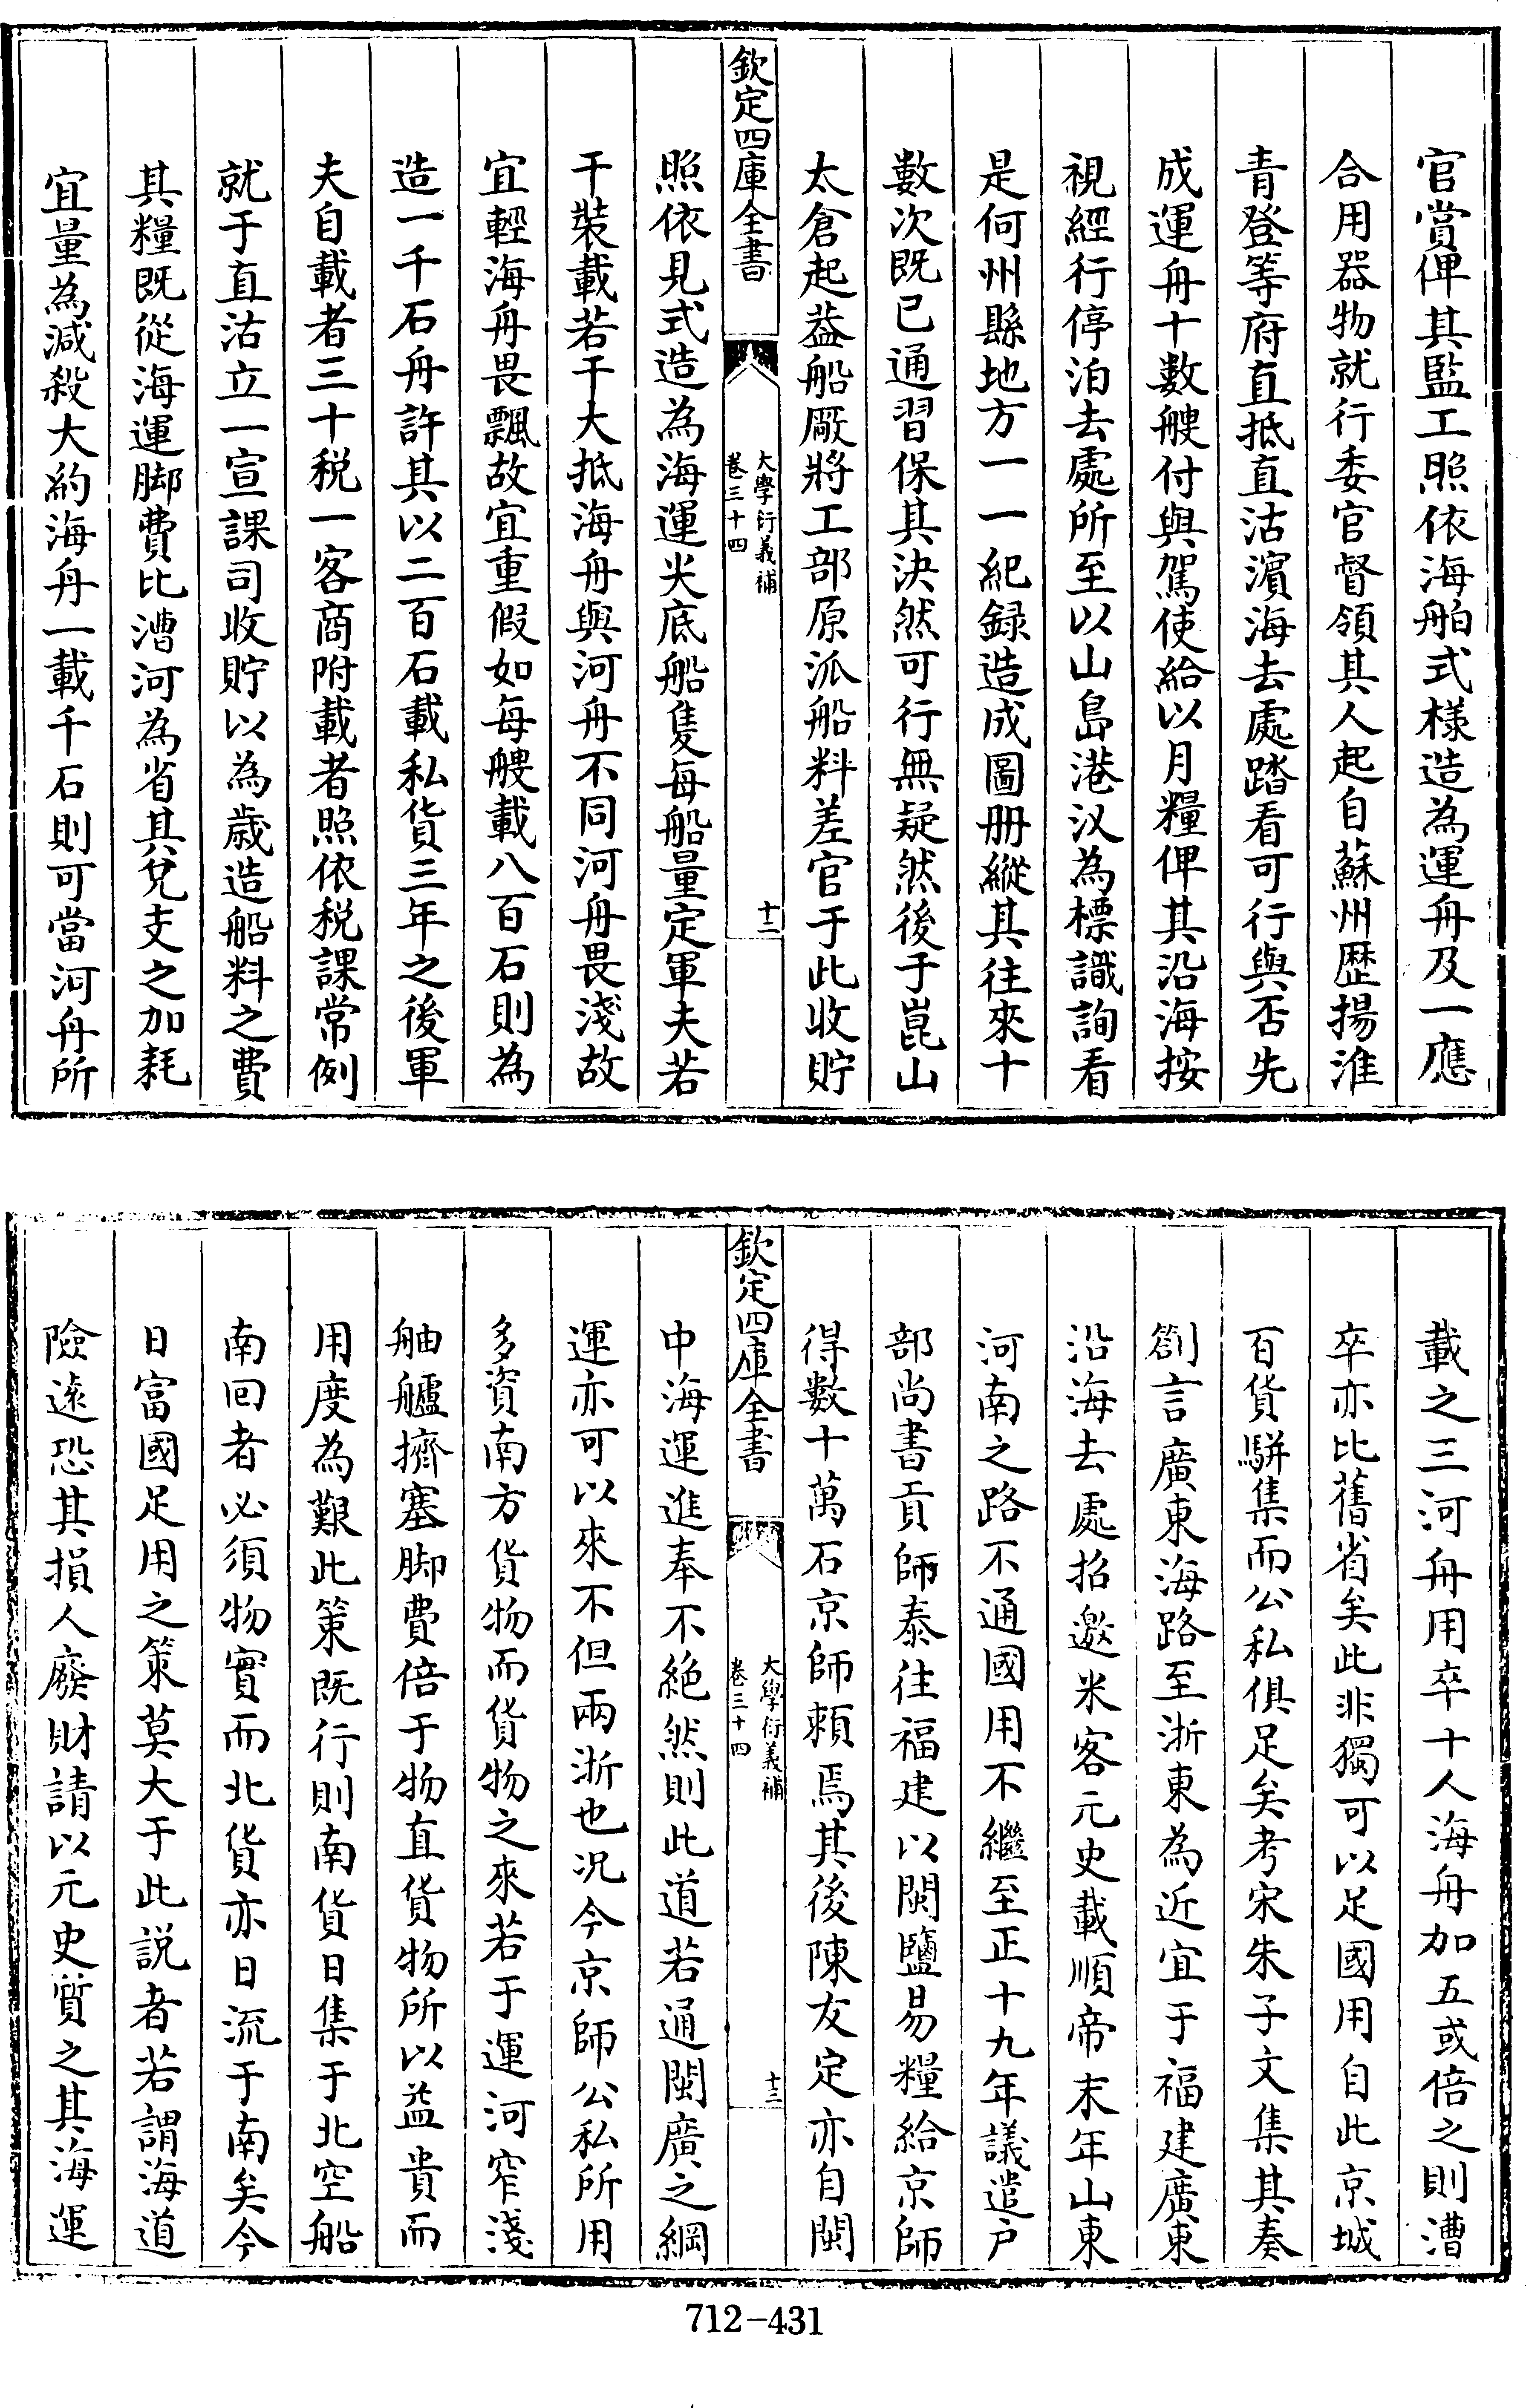 官賞俾其監工照依海舶式樣造為運舟及一應
合用器物就行委官督領其人起自蘇州歷揚淮
青登等府直抵直沽濱海去處踏看可行與否先
成運舟十數艘付與駕使給以月糧俾其沿海按
視經行停泊去處所至以山島港汊為標識詢看
是何州縣地方一一紀録造成圖冊縱其往來十
數次既已通習保其決然可行無疑然後于崑山
太倉起葢船厰將工部原派船料差官于此收貯
欽定四庫全書
大學衍義補
卷三十四
十二
照依見式造為海運尖底船隻每船量定軍夫若
干裝載若干大抵海舟與河舟不同河舟畏淺故
宜輕海舟畏飄故宜重假如每艘載八百石則為
造一千石舟許其以二百石載私貨三年之後軍
夫自載者三十税一客商附載者照依税課常例
就于直沽立一宣課司收貯以為歳造船料之費
其糧既從海運脚費比漕河為省其兌支之加耗
宜量為減殺大約海舟一載千石則可當河舟所
載之三河舟用卒十人海舟加五或倍之則漕
卒亦比舊省矣此非獨可以足國用自此京城
百貨駢集而公私俱足矣考宋朱子文集其奏
劄言廣東海路至浙東為近宜于福建廣東
沿海去處招邀米客元史載順帝末年山東
河南之路不通國用不繼至正十九年議遣户
部尚書貢師泰往福建以閩鹽易糧給京師
得數十萬石京師頼焉其後陳友定亦自閩
欽定四庫全書
大學衍義補
卷三十四
十三
中海運進奉不絶然則此道若通閩廣之綱
運亦可以來不但兩浙也况今京師公私所用
多資南方貨物而貨物之來若于運河窄淺
舳艫擠塞脚費倍于物直貨物所以益貴而
用度為艱此策既行則南貨日集于北空船
南回者必須物實而北貨亦日流于南矣今
日富國足用之策莫大于此説者若謂海道
險遠恐其損人廢財請以元史質之其海運
712-431